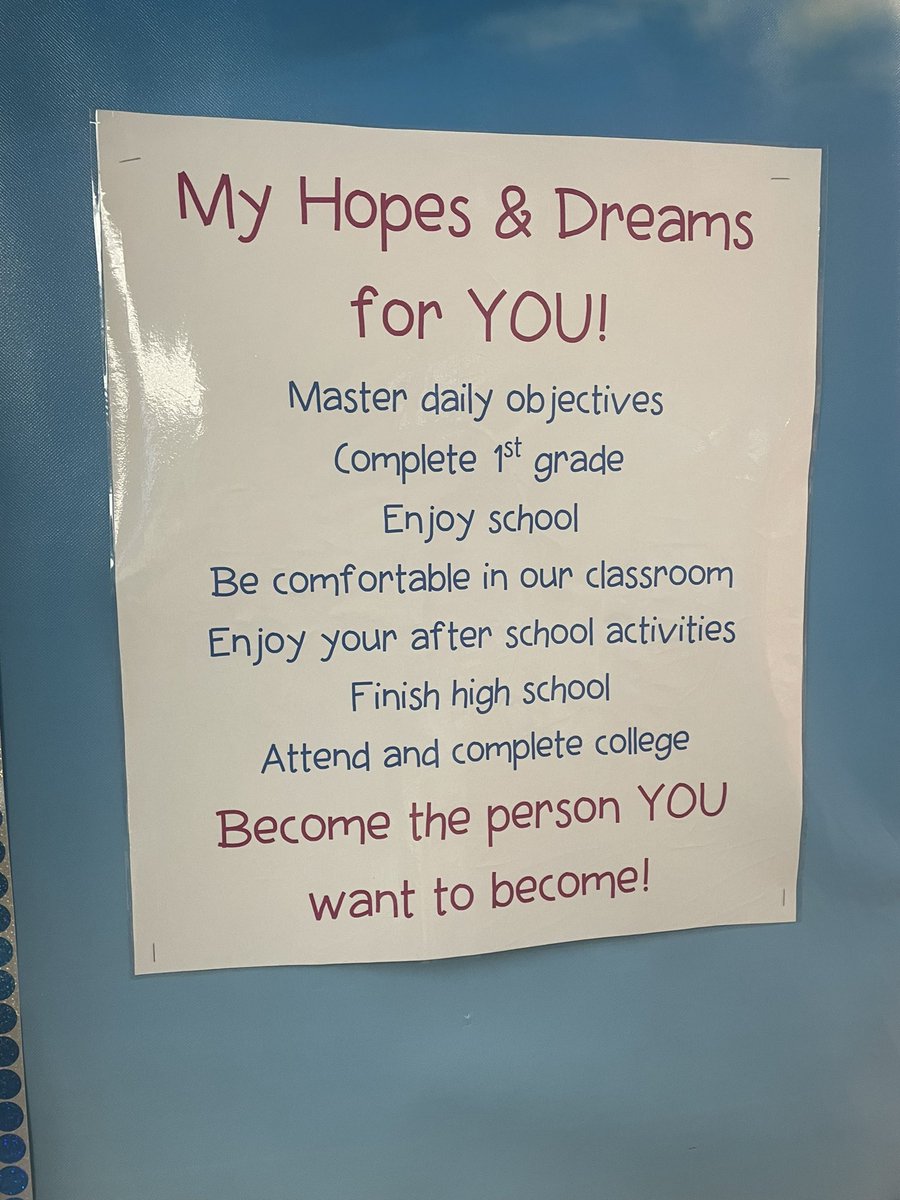 My Hopes & Dreams
for YOU!
Master daily objectives
Complete 1st grade
Enjoy school
Be comfortable in our classroom
Enjoy your after school activities
Finish high school
Attend and complete college
Become the person YOU
want to become!